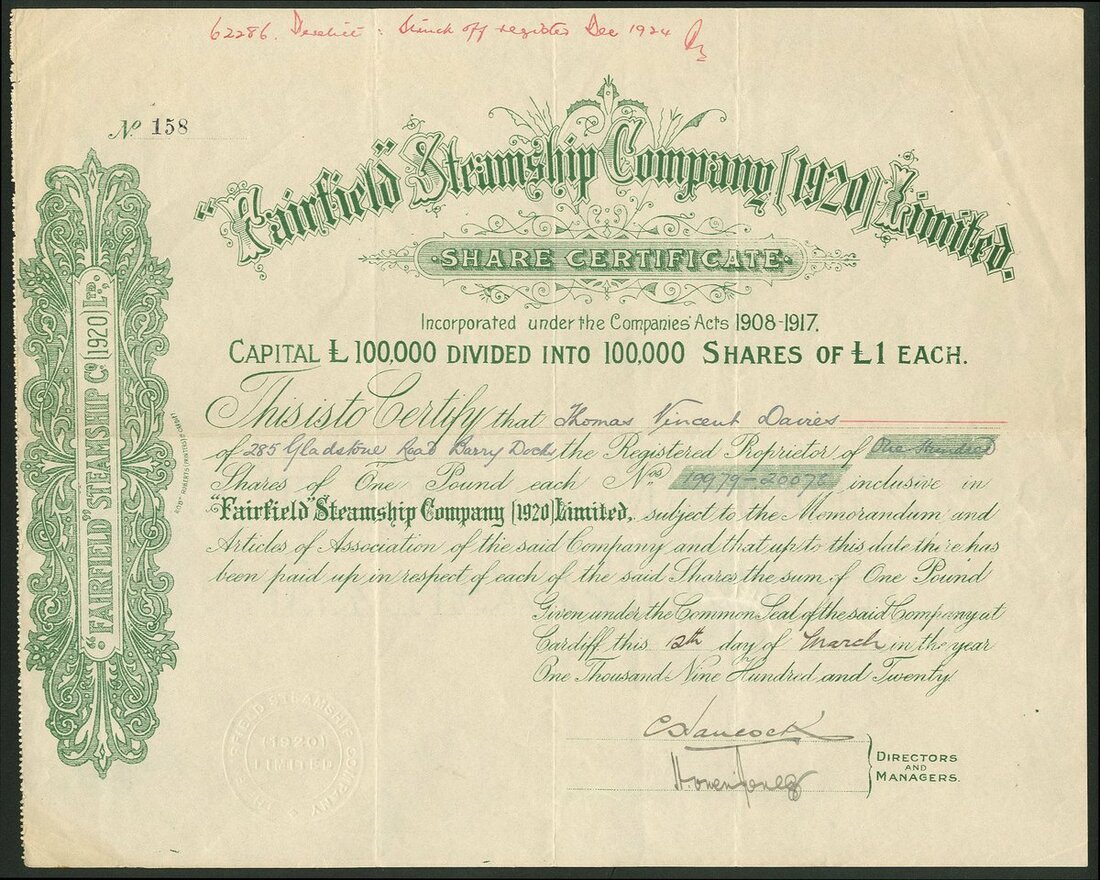 62286. Struck off register Dec 1924
No 158
"Fairfield" Steamship Company (1920) Limited.
SHARE CERTIFICATE
Incorporated under the Companies' Acts 1908-1917.
CAPITAL £100,000 DIVIDED INTO 100,000 SHARES OF £1 EACH.
This is to Certify that Thomas Vincent Davies
of 285 Gladstone Road Barry Docks the Registered Proprietor of One Hundred
Shares of One Pound each Nos 19979-20078 inclusive in
"Fairfield" Steamship Company (1920) Limited, subject to the Memorandum and
Articles of Association of the said Company and that up to this date there has
been paid up in respect of each of the said Shares the sum of One Pound
Given under the Common Seal of the said Company at
Cardiff this 12th day of March in the year
One Thousand Nine Hundred and Twenty
C Hancock
DIRECTORS
AND
MANAGERS.
"FAIRFIELD" STEAMSHIP Co (1920) Ld,
ROBERTS PRINTERS CARDIFF
FAIRFIELD STEAMSHIP COMPANY
(1920)
LIMITED